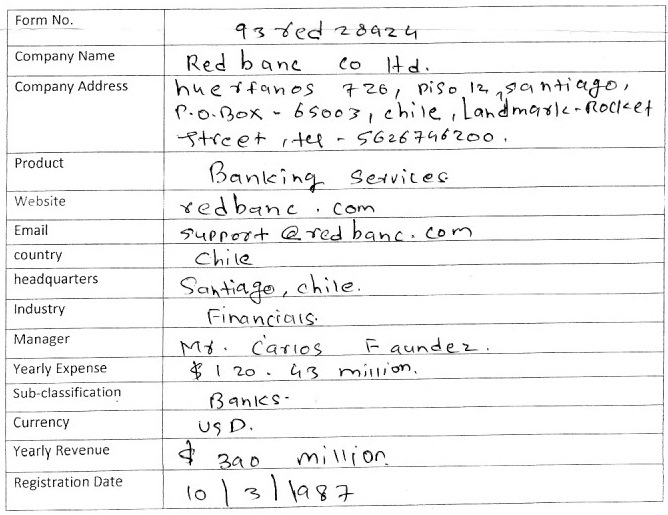 Form No. 93 red 28924
Company Name Redbanc co ltd.
Company Address huerfanos 726, piso 12, santiago,
P.O.Box - 65003, chile, Landmark-Rocket
street, tel - 5626746200.
Product Banking services
Website redbanc.com
Email support@redbanc.com
country Chile
headquarters Santiago, chile.
Industry Financials.
Manager Mr. Carlos Faundez.
Yearly Expense $ 120.43 million.
Sub-classification Banks.
Currency USD.
Yearly Revenue $ 390 million
Registration Date 10/3/1987